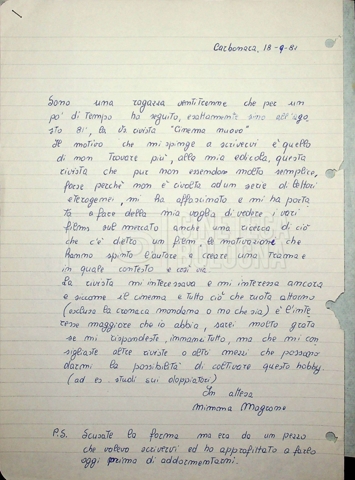 Carbonara, 18-9-81
Sono una ragazza ventitreenne che per un
po' di tempo ha seguito, esattamente sino all'ago
sto 81', la Vs rivista "Cinema nuovo"
Il motivo che mi spinge a scrivervi è quello
di non trovare più, alla mia edicola, questa
rivista che pur non essendo molto semplice,
forse perchè non è rivolta ad un serie di lettori
eterogenei, mi ha affascinato e mi ha porta
to a fare della mia voglia di vedere i vari
films sul mercato anche una ricerca di ciò
che c'è dietro un film, le motivazioni che
hanno spinto l'autore a creare una trama e
in quale contesto e così via.
La rivista mi interessava e mi interessa ancora
e siccome il cinema e tutto ciò che ruota attorno
(esclusa la cronaca mondana o ma che sia) è l'inte
resse maggiore che io abbia, sarei molto grata
se mi rispondeste, innanzitutto, ma che mi con
sigliaste altre riviste o altri mezzi che possano
darmi la possibilità di coltivare questo hobby.
(ad es. studi sui doppiatori)
In attesa
Mimma Magrone
P.S. Scusate la forma ma era da un pezzo
che volevo scrivervi ed ho approfittato a farlo
oggi prima di addormentarmi.